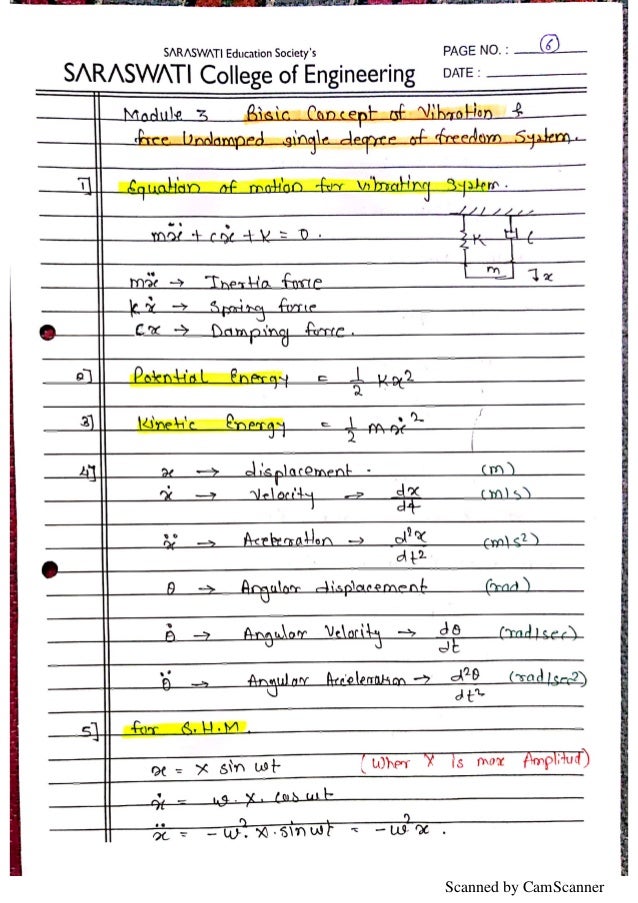 SARASWATI Education Society's
SARASWATI College of Engineering
PAGE NO. : 6
DATE :
Module 3 Bisic Concept of Vibration &
free Undamped single degree of freedom System.
1] Equation of motion for vibrating System.
mẍ + cẋ + K = 0.
K C
m ↓x
mẍ → Inertia force
kẋ → Spring force
Cx → Damping force.
2] Potential Energy = 1/2 Kx²
3] Kinetic Energy = 1/2 mẋ²
4] x → displacement. (m)
ẋ → Velocity → dx/dt (m/s)
ẍ → Acceleration → d²x/dt² (m/s²)
θ → Angular displacement (rad)
θ̇ → Angular Velocity → dθ/dt (rad/sec)
θ̈ → Angular Acceleration → d²θ/dt² (rad/sec2)
5] for S.H.M.
x = X sin wt (Wher X is max Amplitud)
ẋ = w. X. cos wt
ẍ = -w². X. sin wt = -w²x.
Scanned by CamScanner